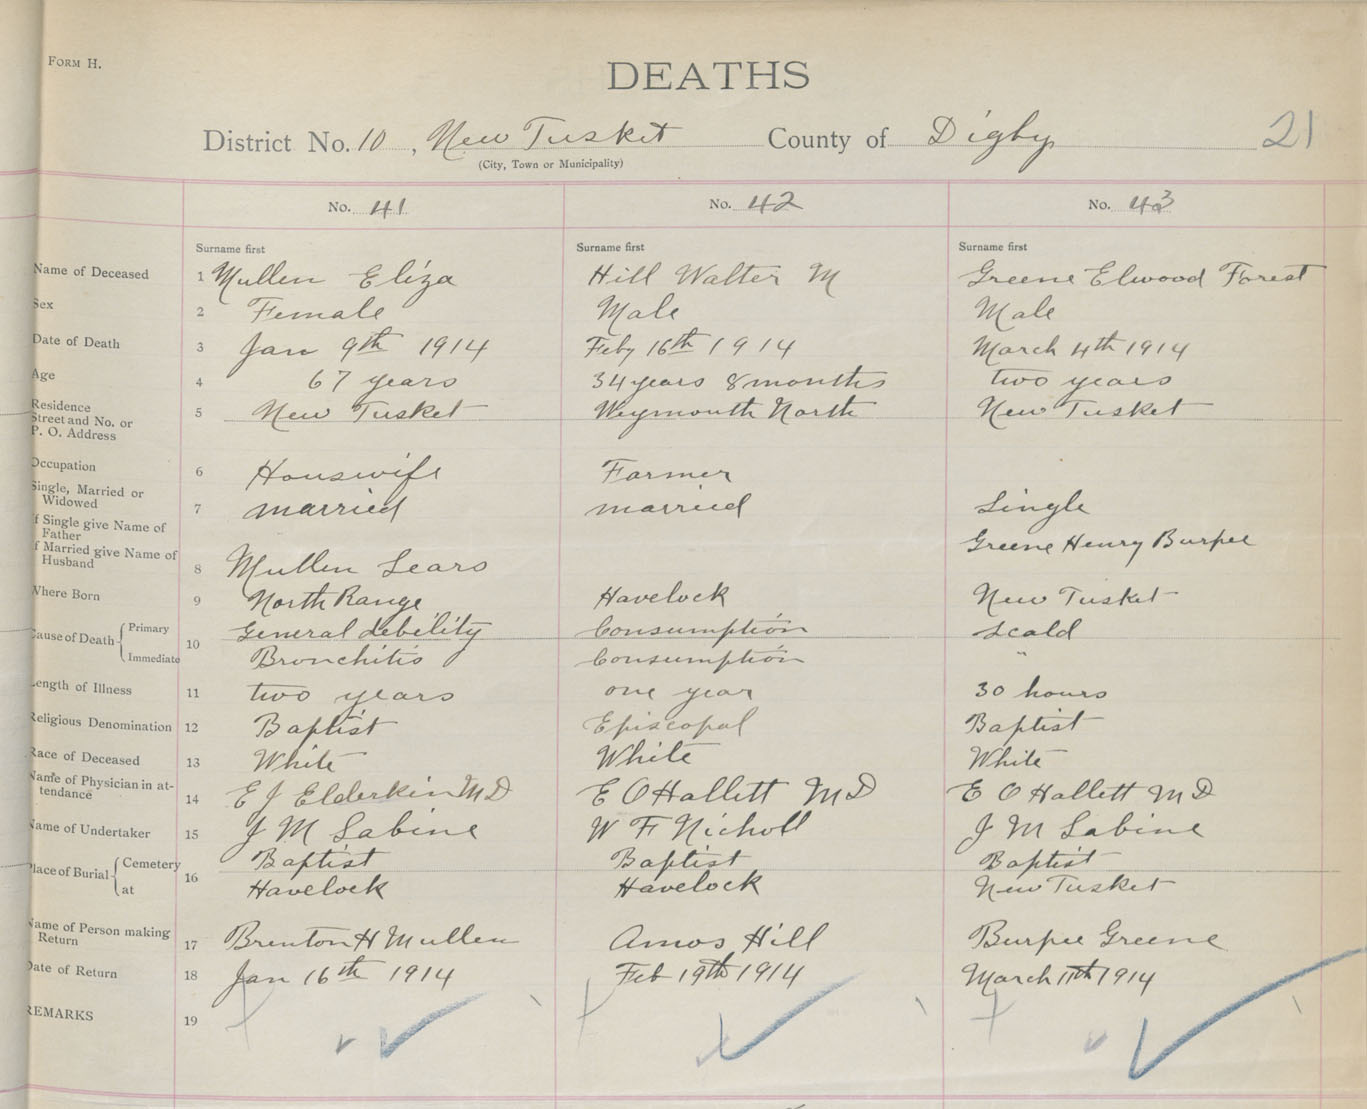 FORM H.
DEATHS
District No. 10, New Tusket County of Digby 21
(City, Town or Municipality)
No. 41 No. 42 No. 43
Surname first Surname first Surname first
Name of Deceased 1 Mullen Eliza Hill Walter M Greene Elwood Forest
Sex 2 Female Male Male
Date of Death 3 Jan 9th 1914 Feby 16th 1914 March 4th 1914
Age 4 67 years 34 years 8 months two years
Residence
Street and No. or 5 New Tusket Weymouth North New Tusket
P. O. Address
Occupation 6 Housewife Farmer
Single, Married or
Widowed 7 married married Single
If Single give Name of
Father Greene Henry Burpee
If Married give Name of
Husband 8 Mullen Sears
Where Born 9 North Range Havelock New Tusket
Cause of Death { Primary 10 General debility Consumption Scald
Immediate Bronchitis Consumption "
Length of Illness 11 two years one year 30 hours
Religious Denomination 12 Baptist Episcopal Baptist
Race of Deceased 13 White White White
Name of Physician in at-
tendance 14 E J Elderkin MD E O Hallett MD E O Hallett MD
Name of Undertaker 15 J M Sabine W F Nicholl J M Sabine
Place of Burial { Cemetery 16 Baptist Baptist Baptist
at Havelock Havelock New Tusket
Name of Person making
Return 17 Brenton H Mullen Amos Hill Burpee Greene
Date of Return 18 Jan 16th 1914 Feb 19th 1914 March 11th 1914
REMARKS 19